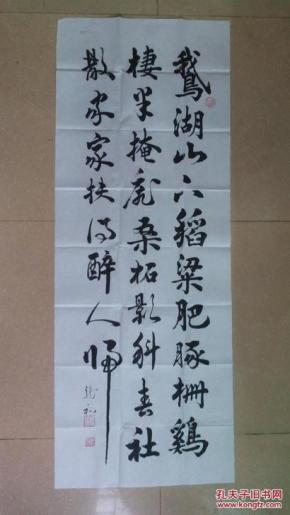 鵞湖山下稻粱肥豚柵鷄
棲半掩扉桑柘影斜春社
散家家扶得醉人歸
孔夫子旧书网